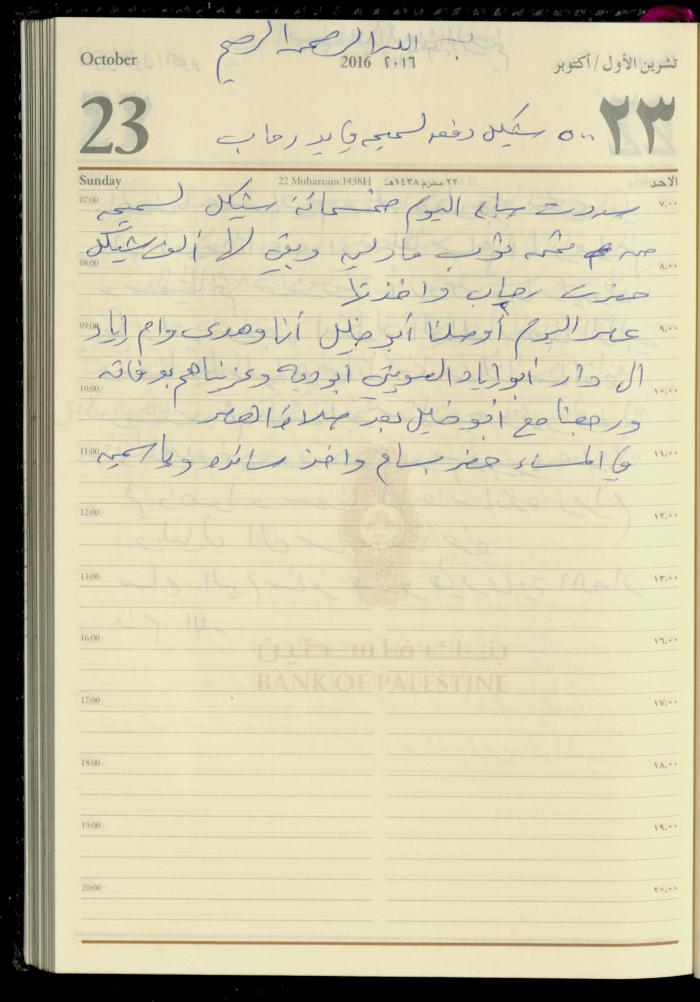 بسم الله الرحمن الرحيم
October 2016 ٢٠١٦ تشرين الأول / أكتوبر
23 ٢٣
٥٠٠ شيكل دفعه لسميحه في يد رحاب
Sunday 22 Muharram 1438H ٢٢ محرم ١٤٣٨هـ الاحد
07:00 ٧,٠٠
سددت صباح اليوم خمسمائة شيكل لسميحه
من ثمن ثوب مارلين وبقي لها ألف شيكل
08:00 ٨,٠٠
حضرت رحاب واخذتها
09:00 ٩,٠٠
عصر اليوم أوصلنا أبو خليل أنا وهدى وام إياد
الى دار أبو إياد أبو ديه وعزيناهم بوفاته
10:00 ١٠,٠٠
ورجعنا مع أبو خليل بعد صلاة العصر
11:00 ١١,٠٠
في المساء حضر بسام واخذ سائده وياسمين
12:00 ١٢,٠٠
13:00 ١٣,٠٠
16:00 ١٦,٠٠
بنك فلسطين
BANK OF PALESTINE
17:00 ١٧,٠٠
18:00 ١٨,٠٠
19:00 ١٩,٠٠
20:00 ٢٠,٠٠